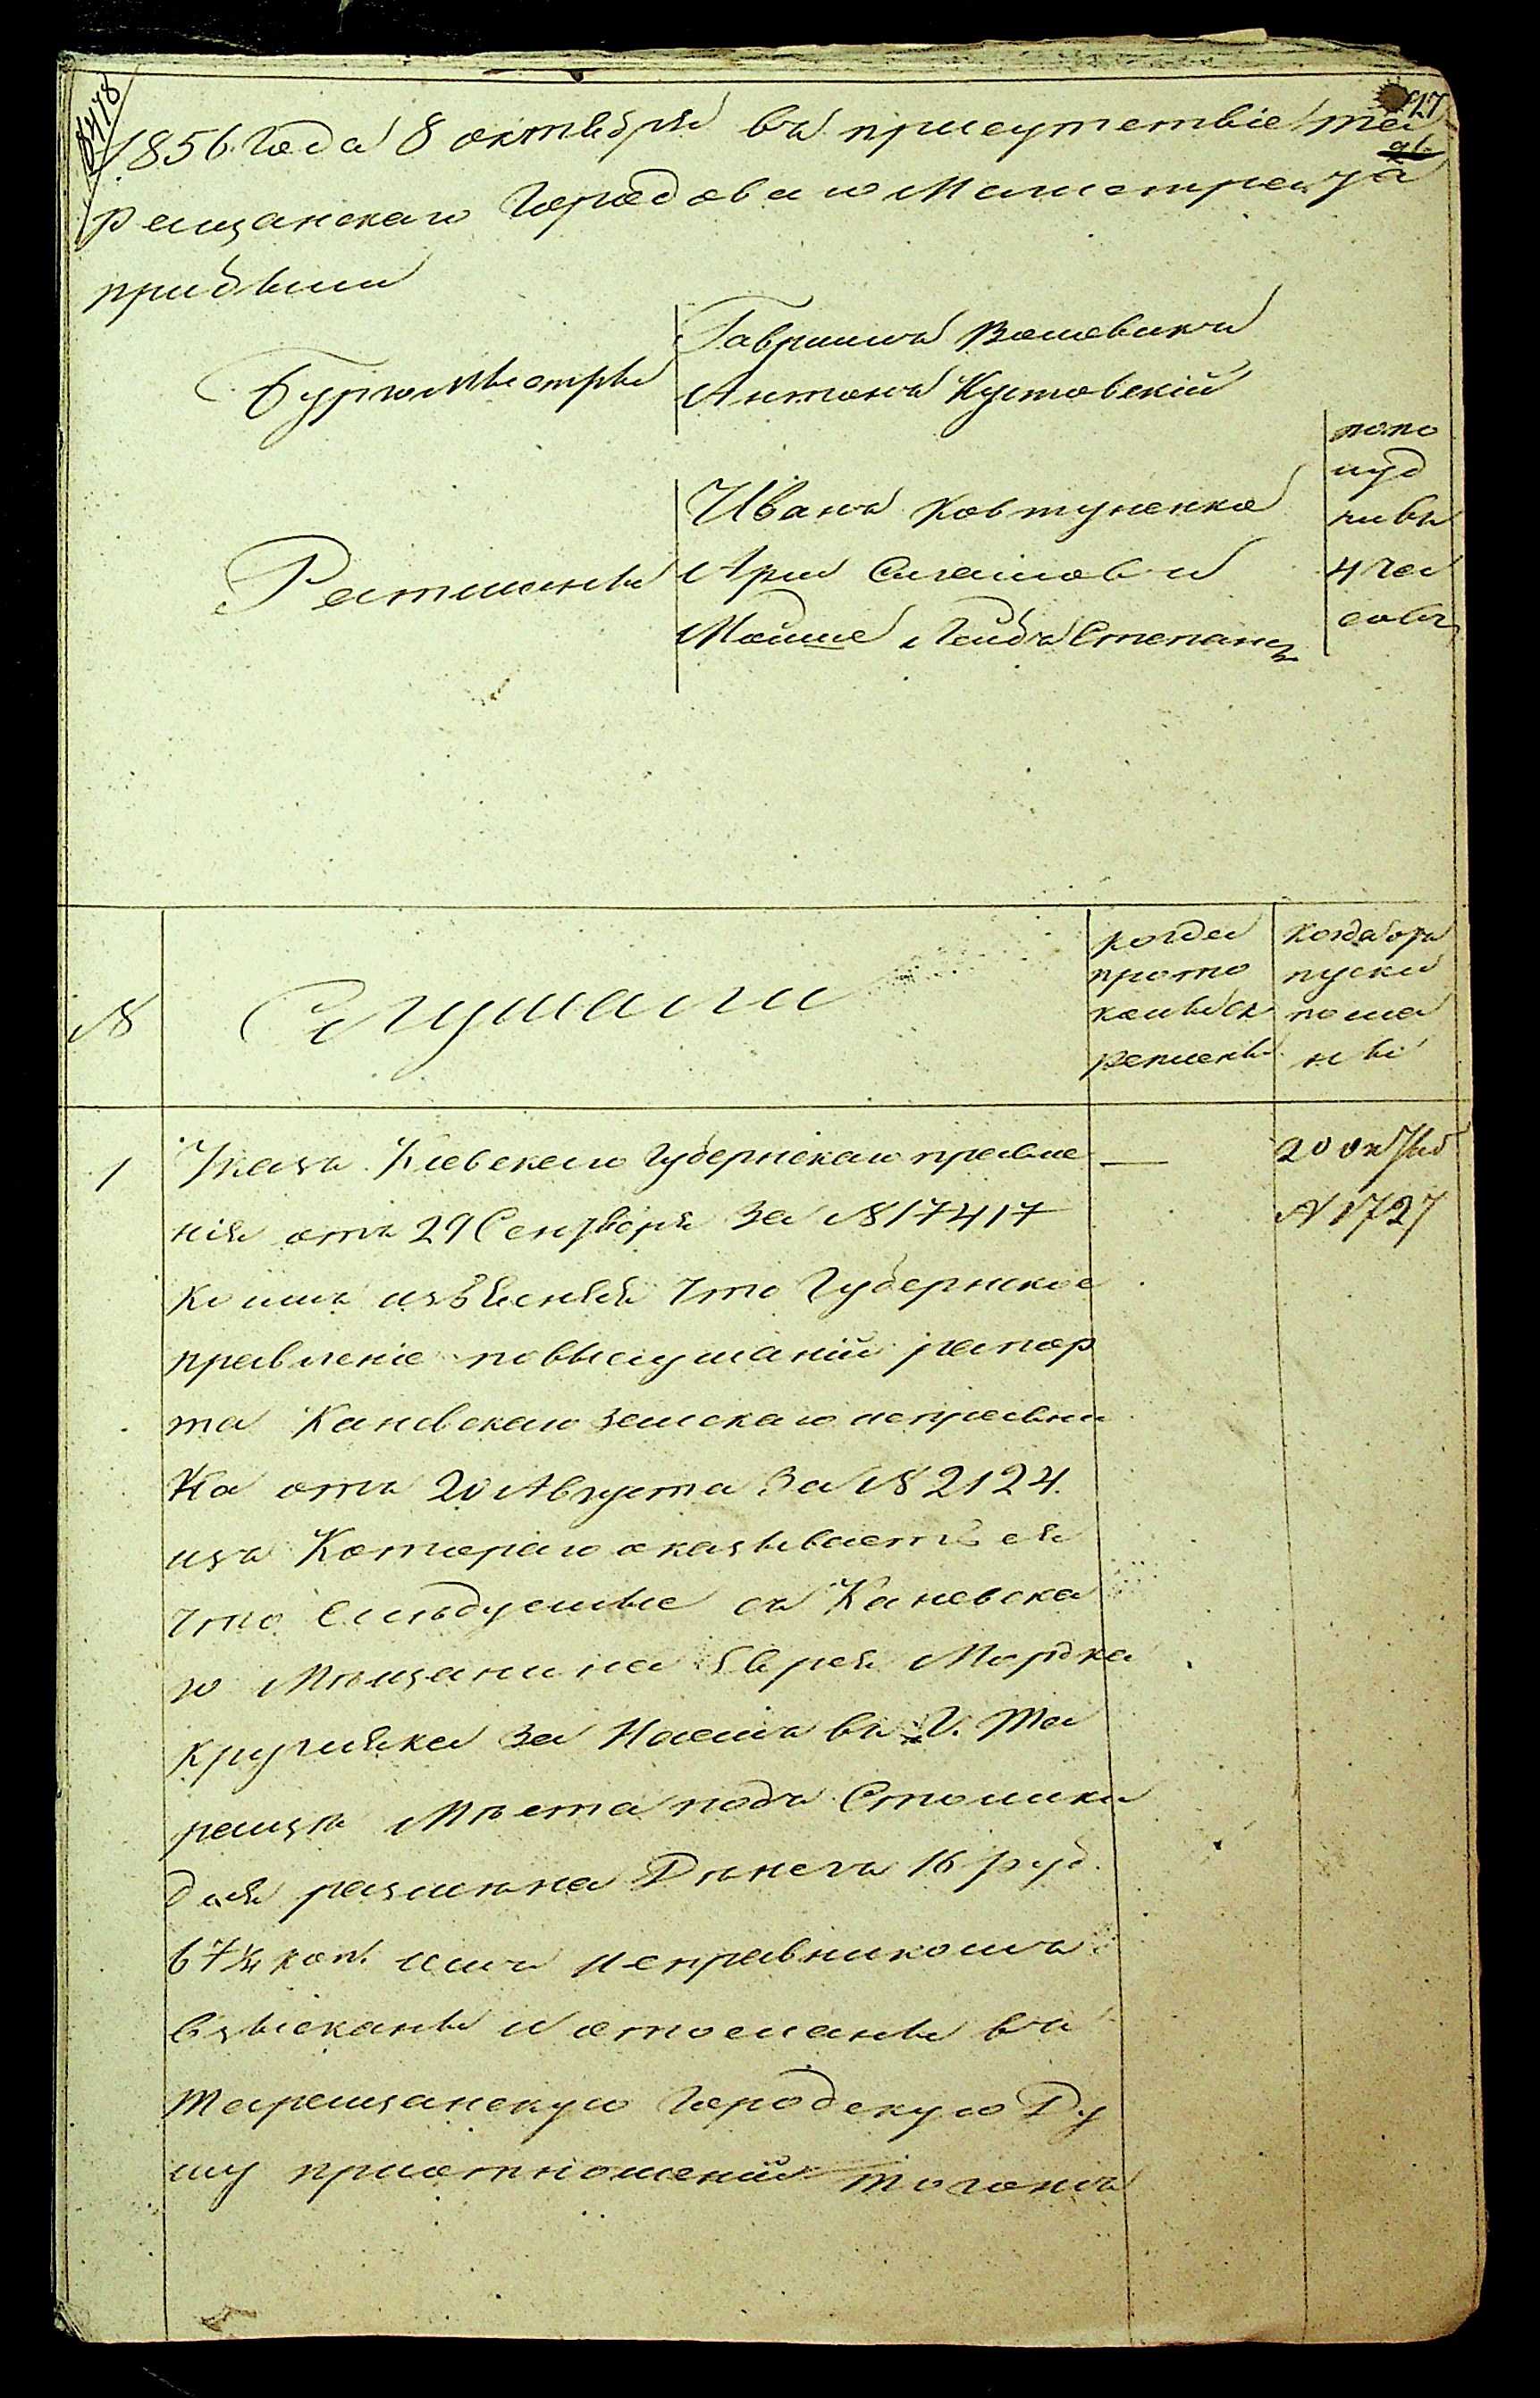 17
1856 Года 8 октября въ присутствіе Та
ращанскаго Городоваго Магистрата
прибыли
Бургомистры
Гавриилъ
Антонъ Кустовскій
Ратманы
Иванъ Ковтуненко
Арш
Мошие Лейба Степанц
попо
луд
ни въ
4 ча
совъ
№
Слушали
когда
прото
колъ ск
репленъ
когда от
пуски
посла
ны
1
Указъ Кіевскаго Губернскаго правле
нія отъ 29 Сентября за №17417
коимъ изъясняя что Губернское
правленіе по выслушаніи рапор
та Каневскаго земскаго исправни
ка отъ 20 Августа за №2124.
изъ Котораго оказывается
что слѣдуемые съ Каневска
го Мѣщанина Еврея Мордка
Кругляка за Наемъ въ Г. Та
ращѣ Мѣста подъ Столики
для размѣна Дѣнегъ 16 руб.
67¼ коп. имъ Исправникомъ
взысканы и отосланы въ
Таращанскую Городскую Ду
му при отношеніи тогожъ
—
20 октяб
№1727